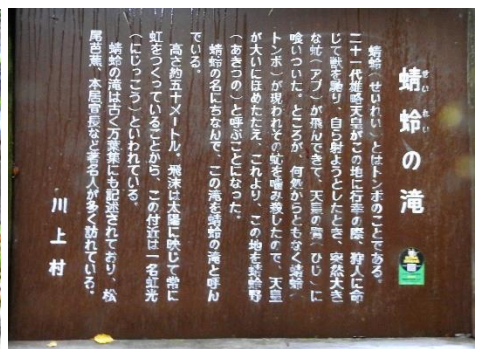 せい れい
蜻蛉の滝
蜻蛉(せいれい)とはトンボのことである。
二十一代雄略天皇がこの地に行幸の際、狩人に命
じて獣を駆り、自ら射ようとしたとき、突然大き
な虻(アブ)が飛んできて、天皇の臂(ひじ)に
喰いついた。ところが、何処からともなく蜻蛉(
トンボ)が現われその虻を噛み殺したので、天皇
が大いにほめたたえ、これより、この地を蜻蛉野
(あきつの)と呼ぶことになった。
蜻蛉の名にちなんで、この滝を蜻蛉の滝と呼ん
でいる。
高さ約五十メートル、飛沫は太陽に映じて常に
虹をつくっていることから、この付近は一名虹光
(にじっこう)といわれている。
蜻蛉の滝は古く万葉集にも記述されており、松
尾芭蕉、本居宣長など著名人が多く訪れている。
川上村